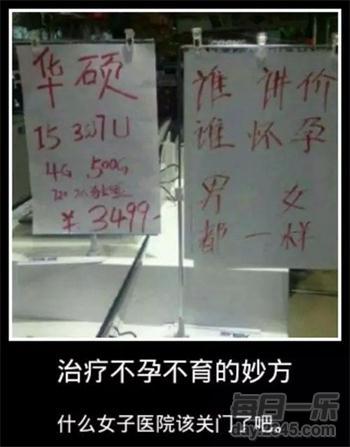 华硕
I5 3317U
4G 500G
¥3499-
谁讲价
谁怀孕
男女
都一样
治疗不孕不育的妙方
什么女子医院该关门了吧。
每日一乐
dayle45.com